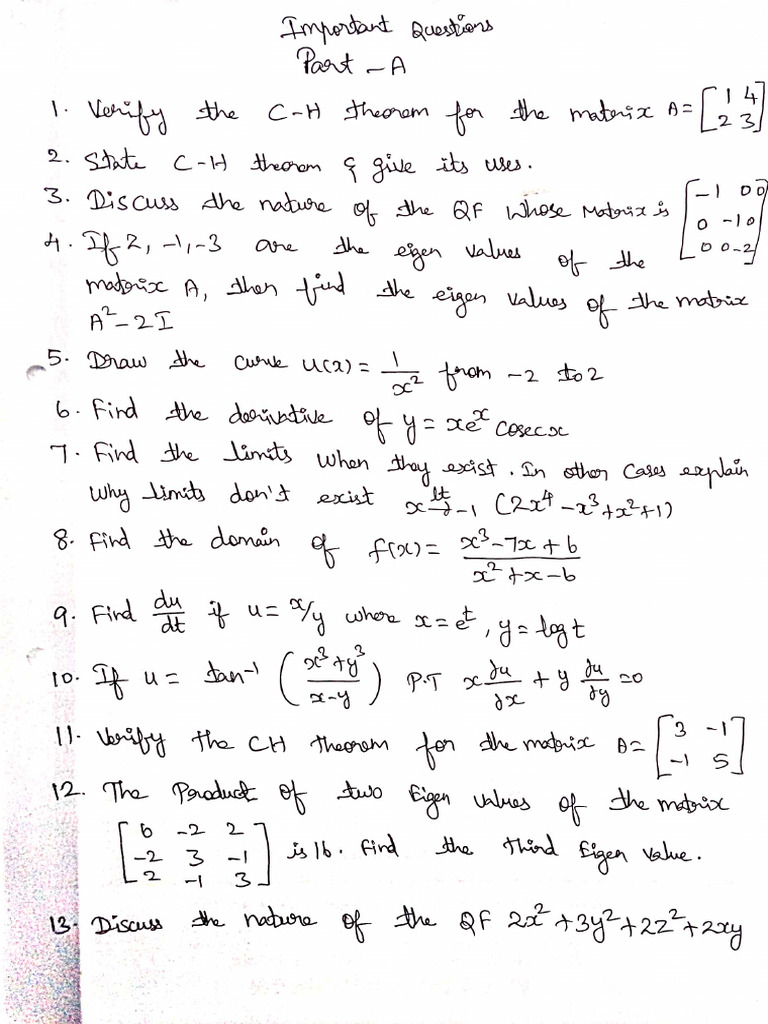 Important Questions
Part - A
1. Verify the C-H theorem for the matrix A = [1 4
2 3]
2. State C-H theorem & give its uses.
3. Discuss the nature of the QF whose Matrix is [-1 0 0
0 -1 0
0 0 -2]
4. If 2, -1, -3 are the eigen values of the
matrix A, then find the eigen values of the matrix
A² - 2I
5. Draw the curve u(x) = 1/x² from -2 to 2
6. Find the derivative of y = xeˣ cosecx
7. Find the limits when they exist. In other cases explain
why limits don't exist lt x→-1 (2x⁴ - x³ + x² + 1)
8. Find the domain of f(x) = x³ - 7x + 6 / x² + x - 6
9. Find du/dt if u = x/y where x = eᵗ, y = log t
10. If u = tan⁻¹ (x³ + y³ / x - y) P.T x ∂u/∂x + y ∂u/∂y = 0
11. Verify the CH theorem for the matrix A = [3 -1
-1 5]
12. The Product of two Eigen values of the matrix
[6 -2 2
-2 3 -1
2 -1 3] is 16. Find the third Eigen value.
13. Discuss the nature of the QF 2x² + 3y² + 2z² + 2xy